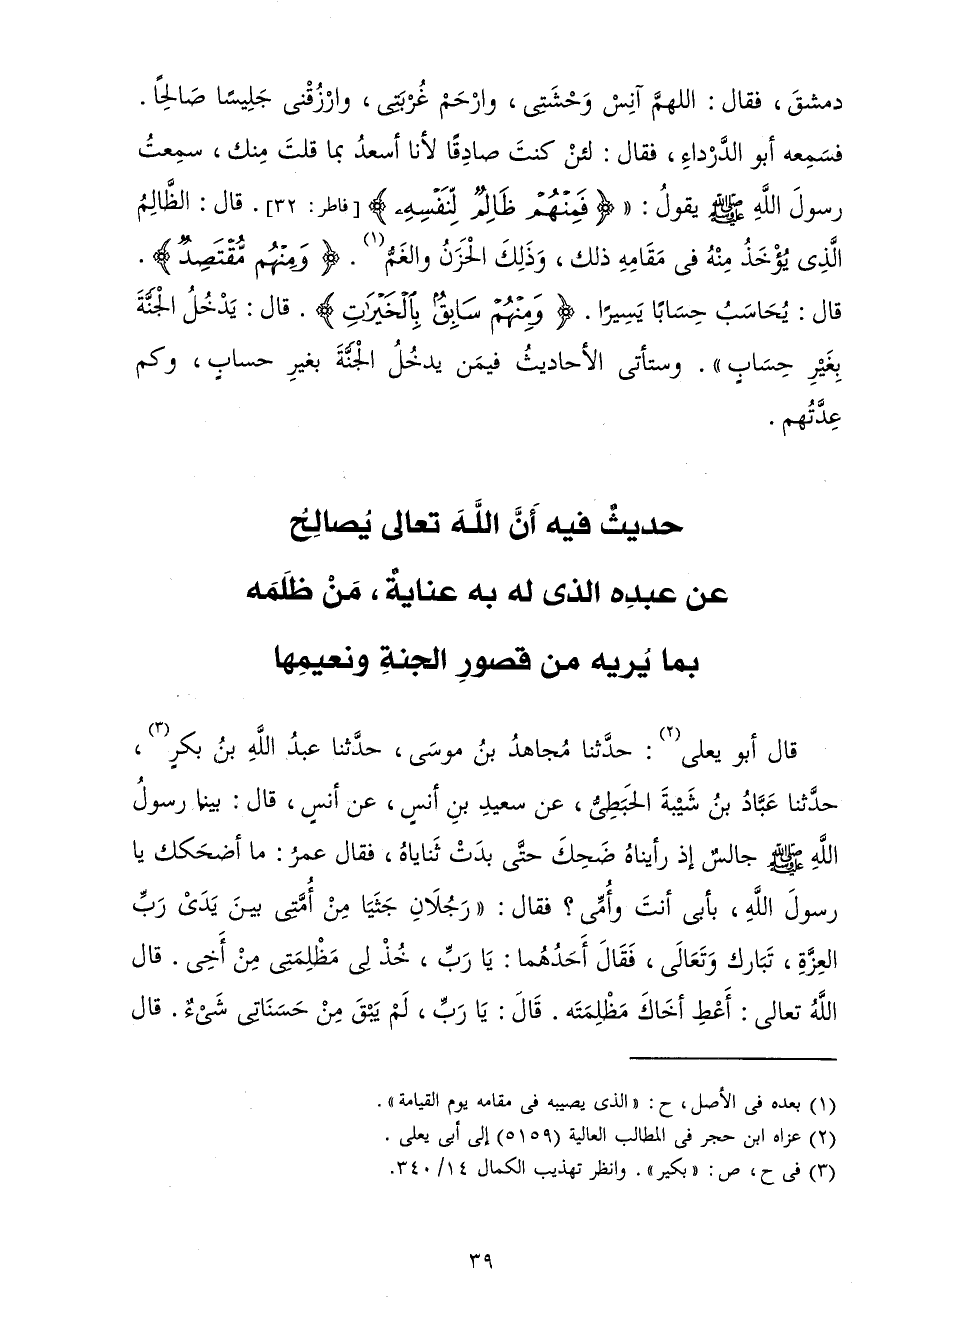 دمشقَ ، فقال : اللهمَّ آنِسْ وَحْشَتِى ، وارْحَمْ غُرْبَتِى ، وارْزُقْنى جَلِيسًا صَالِحًا .
فسَمِعه أبو الدَّرْداءِ ، فقال : لئنْ كنتَ صادِقًا لأنا أسعدُ بما قلتَ مِنك ، سمِعتُ
رسولَ اللَّهِ ﷺ يقولُ : « ﴿ فَمِنْهُمْ ظَالِمٌ لِّنَفْسِهِۦ ﴾ [ فاطر : ٣٢] . قال : الظَّالِمُ
الَّذِى يُؤْخَذُ مِنْهُ فى مَقَامِهِ ذلك ، وَذَلِكَ الْحَزَنُ والغَمُّ (١) . ﴿ وَمِنْهُم مُّقْتَصِدٌ ﴾ .
قال : يُحَاسَبُ حِسَابًا يَسِيرًا . ﴿ وَمِنْهُمْ سَابِقٌ بِالْخَيْرَٰتِ ﴾ . قال : يَدْخُلُ الْجَنَّةَ
بِغَيْرِ حِسَابٍ » . وستأتى الأحاديثُ فيمَن يدخُلُ الْجَنَّةَ بغيرِ حسابٍ ، وكم
عِدَّتُهم .
حديثٌ فيه أَنَّ اللَّهَ تعالى يُصالِحُ
عن عبدِه الذى له به عنايةٌ ، مَنْ ظلَمَه
بما يُريه من قصورِ الجنةِ ونعيمِها
قال أبو يعلى (٢) : حدَّثنا مُجاهدُ بنُ موسَى ، حدَّثنا عبدُ اللَّهِ بنُ بكرٍ (٣) ،
حدَّثنا عَبَّادُ بنُ شَيْبَةَ الحَبَطِىُّ ، عن سعيدِ بنِ أنسٍ ، عن أنسٍ ، قال : بينا رسولُ
اللَّهِ ﷺ جالسٌ إذ رأيناهُ ضَحِكَ حتَّى بدَتْ ثَناياهُ ، فقال عمرُ : ما أضحَكك يا
رسولَ اللَّهِ ، بأبى أنتَ وأُمِّى ؟ فقال : « رَجُلَانِ جَثَيَا مِنْ أُمَّتِى بينَ يَدَىْ رَبِّ
العِزَّةِ ، تَبَارك وَتَعَالَى ، فَقَالَ أَحَدُهُما : يَا رَبِّ ، خُذْ لِى مَظْلِمَتِى مِنْ أَخِى . قال
اللَّهُ تعالى : أَعْطِ أخَاكَ مَظْلِمَتَه . قَالَ : يَا رَبِّ ، لَمْ يَبْقَ مِنْ حَسَنَاتِى شَىْءٌ . قال
(١) بعده فى الأصل ، ح : « الذى يصيبه فى مقامه يوم القيامة » .
(٢) عزاه ابن حجر فى المطالب العالية (٥١٥٩) إلى أبى يعلى .
(٣) فى ح ، ص : « بكير » . وانظر تهذيب الكمال ١٤/ ٣٤٠.
٣٩